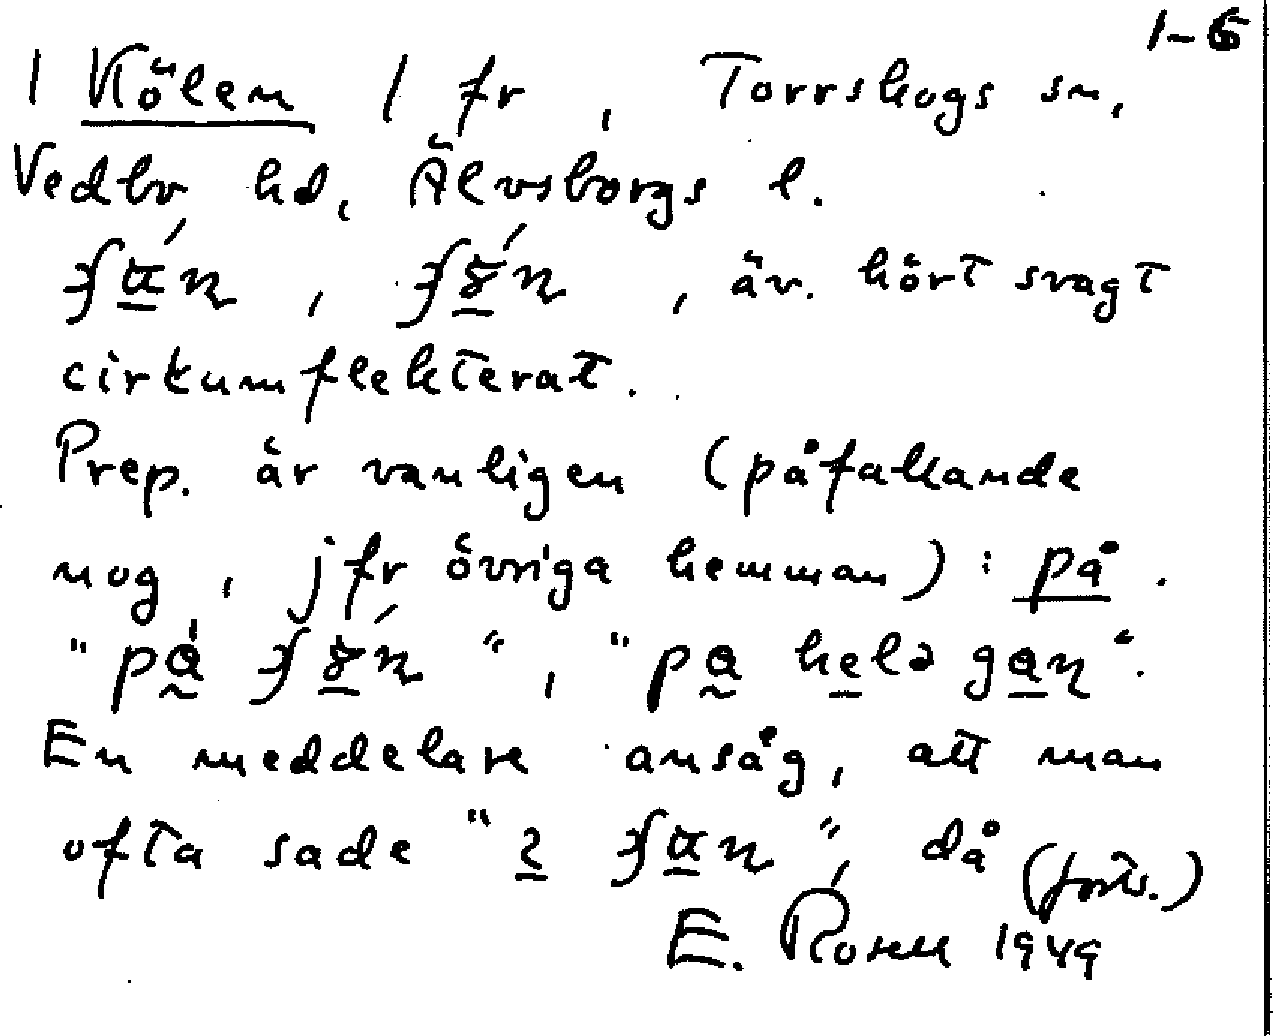 1-6
1 Kölen 1 fr, Torrskogs sn,
Vedbo hd, Älvsborgs l.
, äv. hört svagt
cirkumflekterat.
Prep. är vanligen (påfallande
nog, jfr övriga hemman) : på.
"på ", "pa helə gan".
En meddelare ansåg, att man
ofta sade " ", då (forts.)
E. Rosell 1949